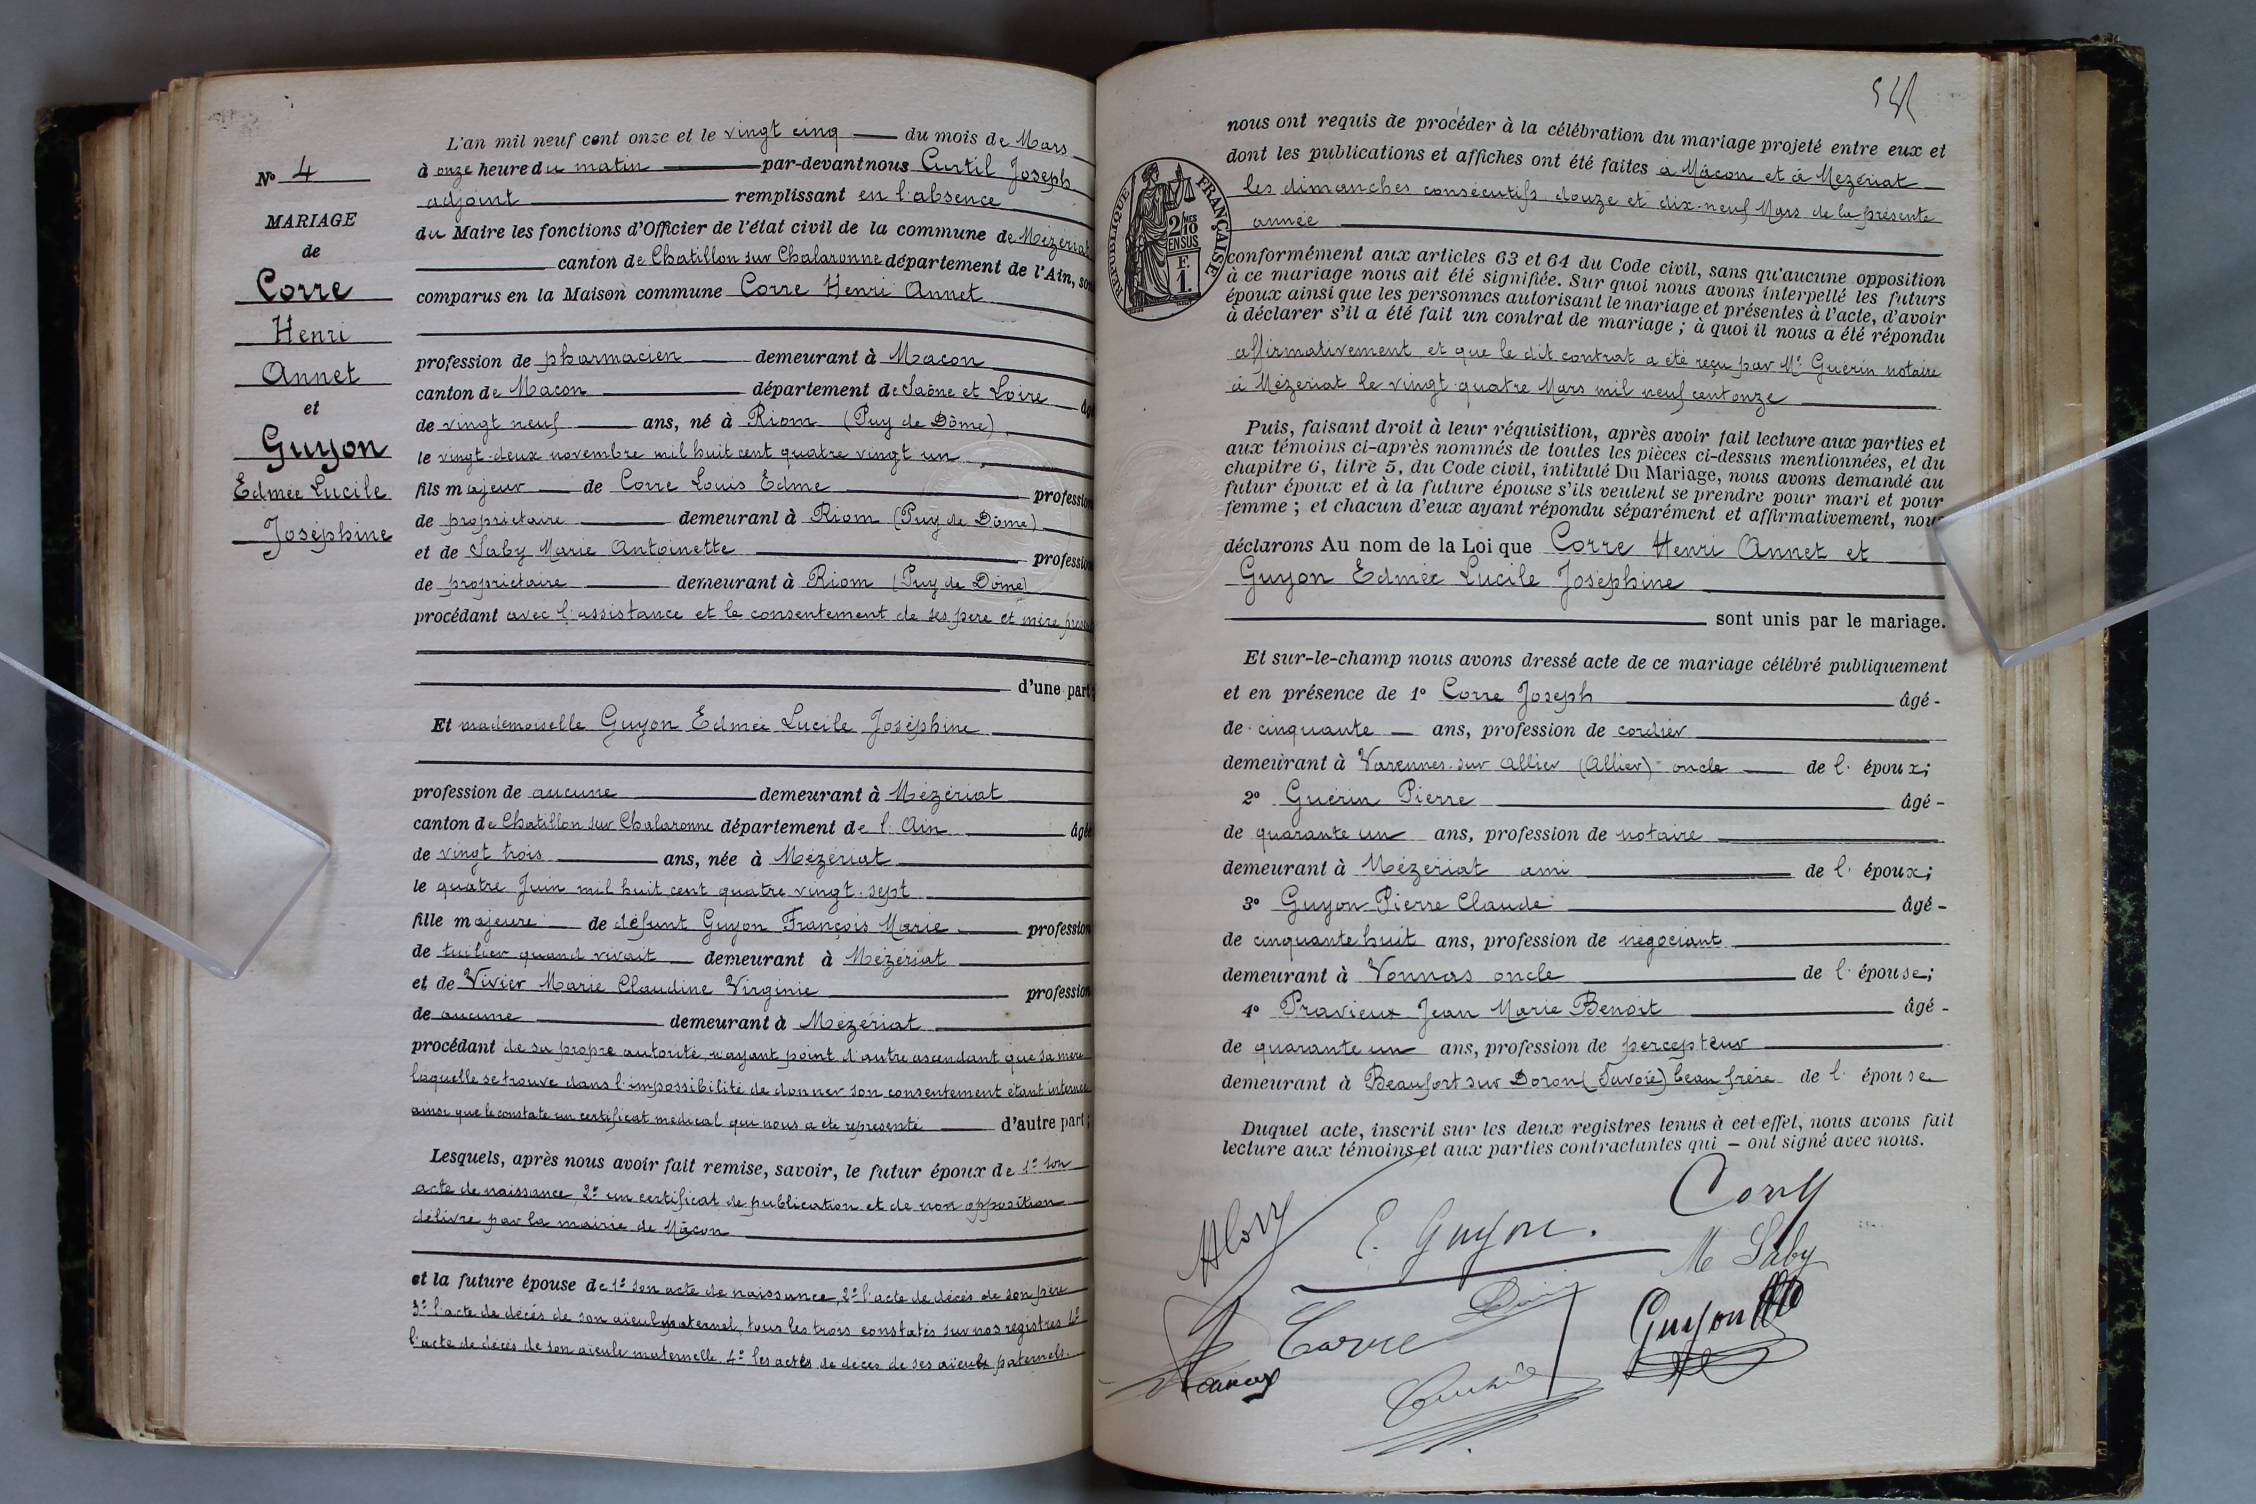 L'an mil neuf cent onze et le vingt cinq du mois de Mars
à onze heure du matin par-devant nous Curtil Joseph
adjoint remplissant en l'absence
du Maire les fonctions d'Officier de l'état civil de la commune de Mézériat
canton de Chatillon sur Chalaronne département de l'Ain, sont
comparus en la Maison commune Corre Henri Annet
profession de pharmacien demeurant à Macon
canton de Macon département de Saône et Loire
de vingt neuf ans, né à Riom (Puy de Dôme)
le vingt-deux novembre mil huit cent quatre vingt un
fils majeur de Corre Louis Edme profession
de propriétaire demeurant à Riom (Puy de Dôme)
et de Saby Marie Antoinette profession
de propriétaire demeurant à Riom (Puy de Dôme)
procédant avec l'assistance et le consentement de ses père et mère
d'une part;
Et mademoiselle Guyon Edmée Lucile Joséphine
profession de aucune demeurant à Mézériat
canton de Chatillon sur Chalaronne département de l'Ain âgée
de vingt trois ans, née à Mézériat
le quatre Juin mil huit cent quatre vingt-sept
fille majeure de défunt Guyon François Marie profession
de tuilier quand vivait demeurant à Mézériat
et de Vivier Marie Claudine Virginie profession
de aucune demeurant à Mézériat
procédant de sa propre autorité, n'ayant point d'autre ascendant que sa mère
laquelle se trouve dans l'impossibilité de donner son consentement étant internée
ainsi que le constate un certificat médical qui nous a été représenté d'autre part;
Lesquels, après nous avoir fait remise, savoir, le futur époux de 1º son
acte de naissance 2º un certificat de publication et de non opposition
délivré par la mairie de Mâcon
et la future épouse de 1º son acte de naissance, 2º l'acte de décès de son père
3º l'acte de décès de son aïeul maternel, tous les trois constatés sur nos registres 4º
l'acte de décès de son aïeule maternelle 4º les actes de décès de ses aïeuls paternels.
Nº 4
MARIAGE
de
Corre
Henri
Annet
et
Guyon
Edmée Lucile
Joséphine
nous ont requis de procéder à la célébration du mariage projeté entre eux et
dont les publications et affiches ont été faites à Mâcon et à Mézériat
les dimanches consécutifs douze et dix-neuf Mars de la présente
année
conformément aux articles 63 et 64 du Code civil, sans qu'aucune opposition
à ce mariage nous ait été signifiée. Sur quoi nous avons interpellé les futurs
époux ainsi que les personnes autorisant le mariage et présentes à l'acte, d'avoir
à déclarer s'il a été fait un contrat de mariage; à quoi il nous a été répondu
affirmativement et que le dit contrat a été reçu par Me Guérin notaire
à Mézériat le vingt-quatre Mars mil neuf cent onze
Puis, faisant droit à leur réquisition, après avoir fait lecture aux parties et
aux témoins ci-après nommés de toutes les pièces ci-dessus mentionnées, et du
chapitre 6, titre 5, du Code civil, intitulé Du Mariage, nous avons demandé au
futur époux et à la future épouse s'ils veulent se prendre pour mari et pour
femme; et chacun d'eux ayant répondu séparément et affirmativement, nous
déclarons Au nom de la Loi que Corre Henri Annet et
Guyon Edmée Lucile Joséphine
sont unis par le mariage.
Et sur-le-champ nous avons dressé acte de ce mariage célébré publiquement
et en présence de 1º Corre Joseph âgé
de cinquante ans, profession de cordier
demeurant à Varennes-sur Allier (Allier) oncle de l'époux;
2º Guérin Pierre âgé
de quarante un ans, profession de notaire
demeurant à Mézériat ami de l'époux;
3º Guyon Pierre Claude âgé
de cinquante huit ans, profession de négociant
demeurant à Vonnas oncle de l'épouse;
4º Pravieux Jean Marie Benoit âgé
de quarante un ans, profession de percepteur
demeurant à Beaufort sur Doron (Savoie) beau frère de l'épouse
Duquel acte, inscrit sur les deux registres tenus à cet effet, nous avons fait
lecture aux témoins et aux parties contractantes qui ont signé avec nous.
E. Guyon.
M Saby
Corre
Guyon
RÉPUBLIQUE FRANÇAISE
2/10
EN SUS
F.
1.